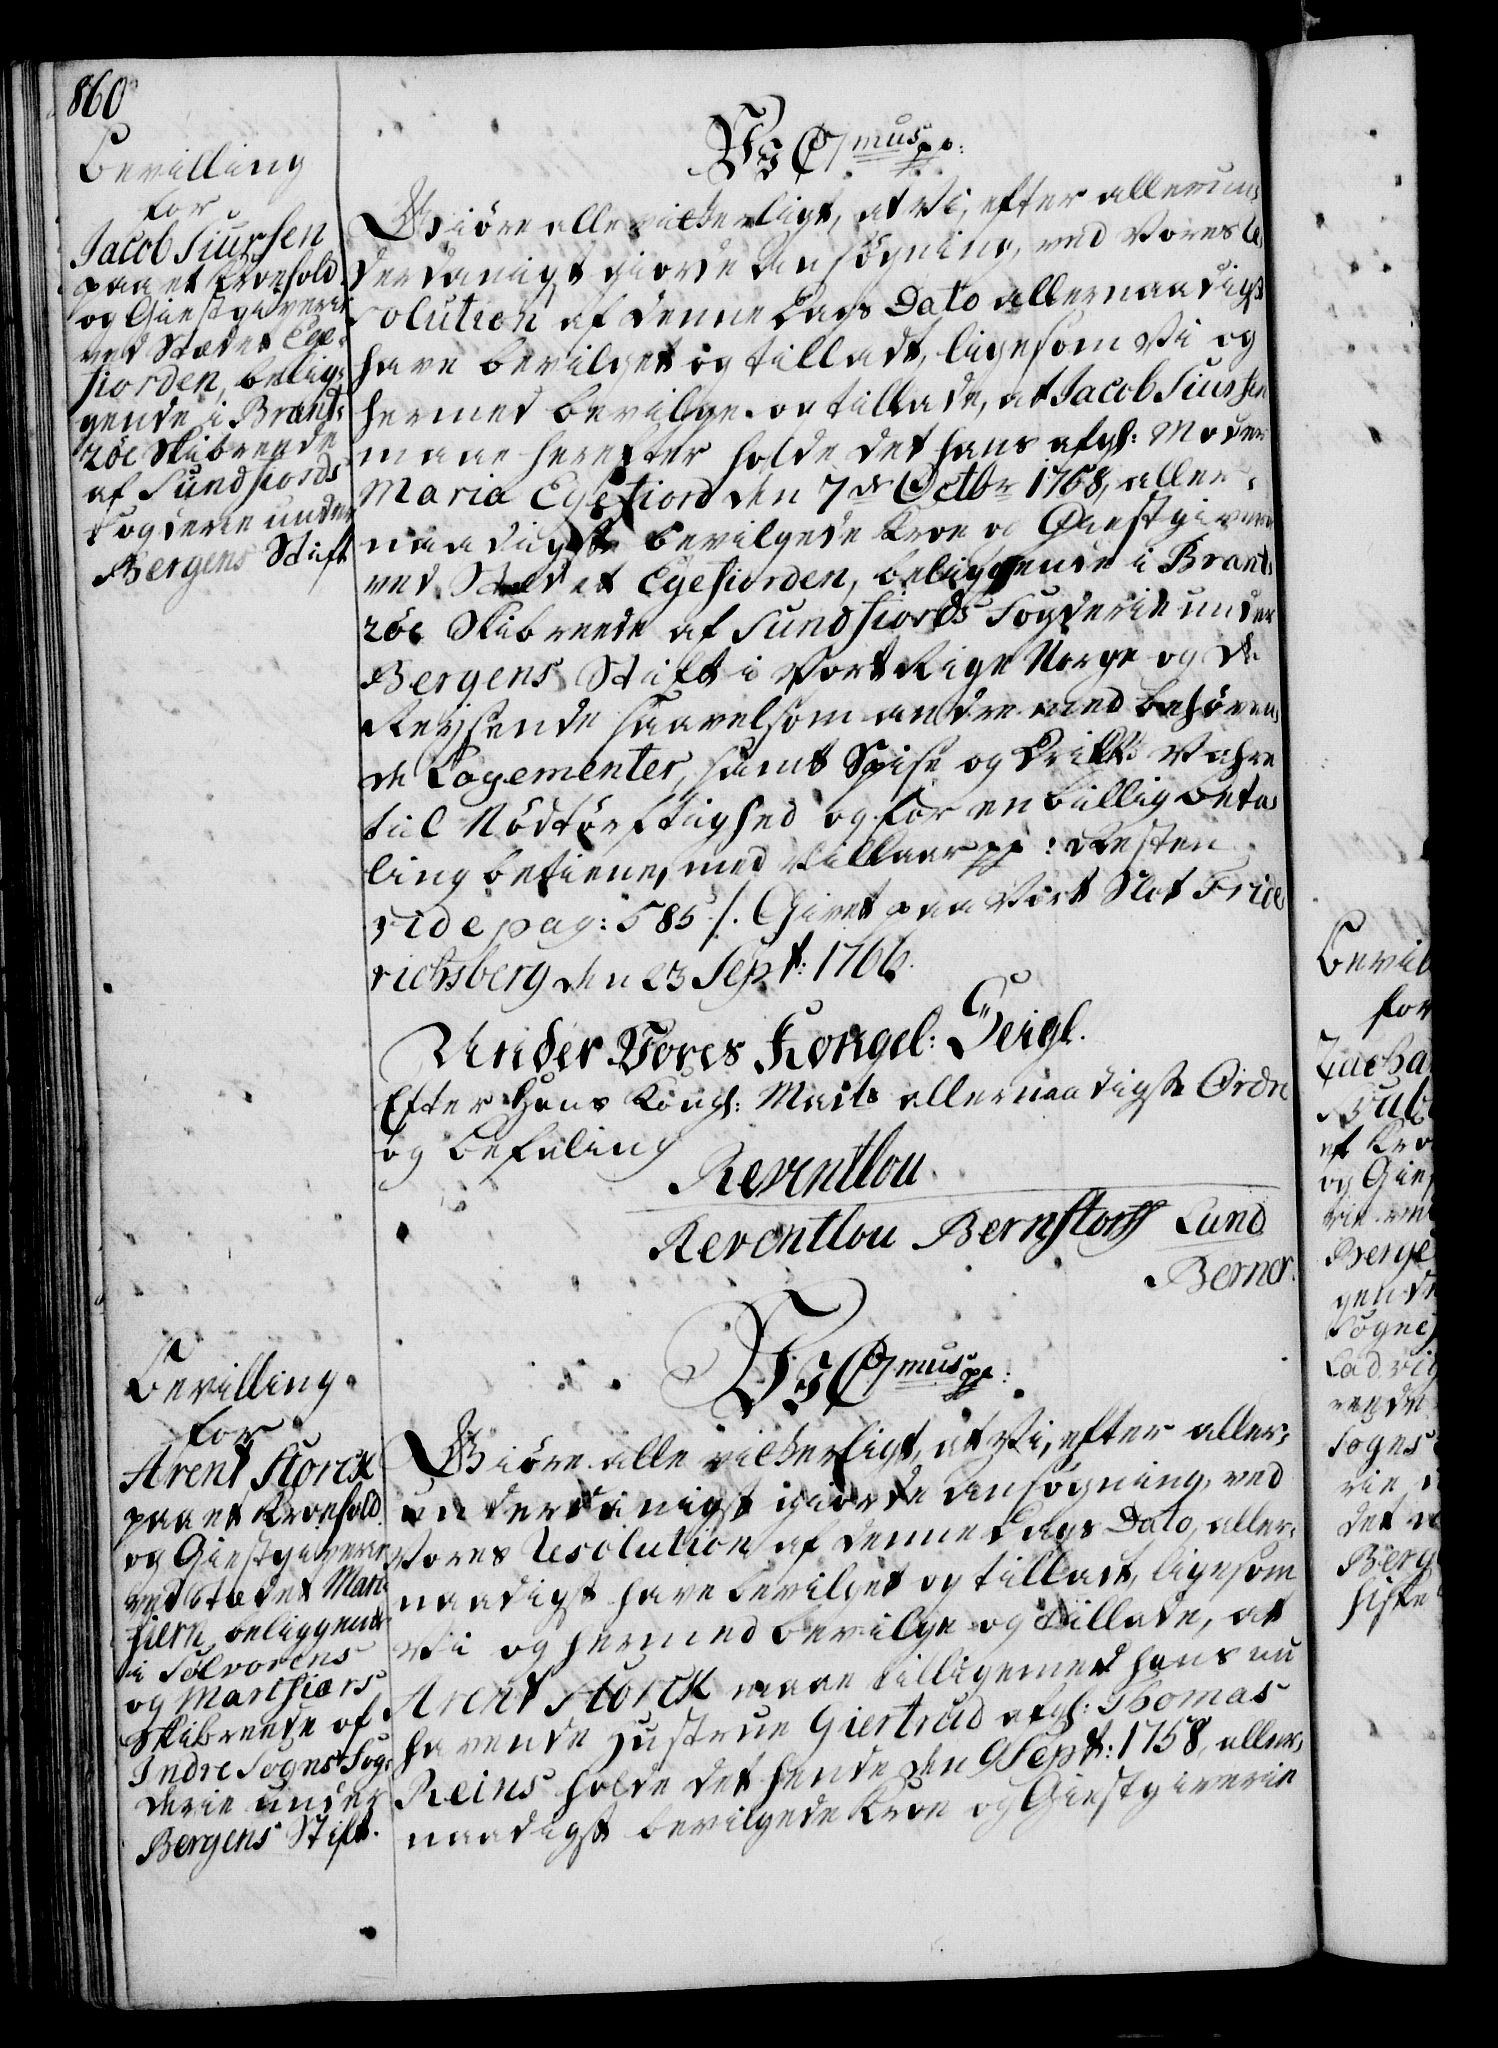 860
Bevilling
for
Jacob Siursen
paa et Kroehold
og Giestgiverie
ved Stædet Ege-
fiorden, belig-
gende i Brand-
zöe Skibreede
af Sundfiords
Fogderie under
Bergens Stift
Vy C 7mus pp:
Giöre alle vitterligt, at Vi, efter allerun-
derdanigst giorde Ansögning, ved Vores Re-
solution af denne Dags Dato allernaadigst
have bevilget og tilladt, ligesom Vi og
hermed bevilge og tillade, at Jacob Siursen
maae herefter holde det hans afgl: Moder
Maria Egefiord den 7de Octbr 1768, aller-
naadigst bevilgede Kroe og Giestgiverie
ved Stædet Egefiorden, beliggende i Brand-
zöe Skibreede af Sundfiords Fogderie under
Bergens Stift i Vort Rige Norge og de
Reysende saavelsom andre med behöven-
de Logementer, samt Spise og Drikke Vahre
til Nödtörftighed og for en billig beta-
ling betiene, med Villkaar pp: Resten
vide pag: 585 /. Givet paa Vort Slot Fride
richsberg den 23 Sept: 1766.
Under Vores Kongel: Seigl.
Efter Hans Kongl: Maits allernaadigste Ordre
og Befaling
Reventlou
Reventlou Bernstorff Lund
Berner.
Bevilling
for
Arent Storck
paa et Kroehold
og Giestgiverie
ved Stædet Mari-
fiern beliggende
i Solvorens
og Marifiærs
Skibreede af
Indre Sogns Fog-
derie under
Bergens Stift.
Vy C 7mus pp:
Giöre alle vitterligt, at Vi, efter aller-
underdanigst giorde Ansögning, ved
Vores Resolution af denne Dags Dato, aller-
naadigst have bevilget og tilladt, ligesom
Vi og hermed bevilge og tillade, at
Arent Storck maae tilligemed hans nu
havende Hustrue Giertrud afgl: Thomas
Reins holde det hende den 9 Sept: 1758, aller-
naadigst bevilgede Kroe og Giestgiverie
Bevil
for
Zacha
et Kro
og Gies
Berge
gende
Sogne
Ladvig
reede
Sogns
rie
det
Berg